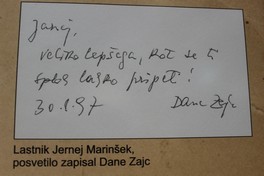 veliko lepšega, kot se ti
sploh lahko pripeti!
30.1.97 Dane Zajc
Lastnik Jernej Marinšek,
posvetilo zapisal Dane Zajc